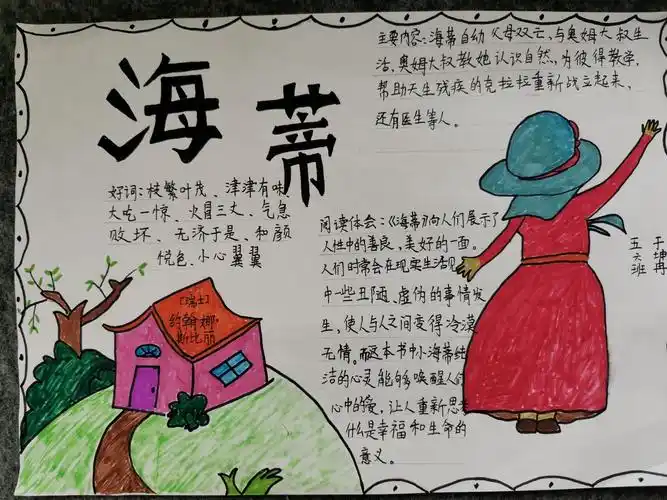 海蒂
主要内容：海蒂自幼父母双亡，与奥姆大叔生
活，奥姆大叔教她认识自然，为彼得教学，
帮助天生残疾的克拉拉重新战立起来，
还有医生等人。
好词：枝繁叶茂、津津有味
大吃一惊、火冒三丈、气急
败坏、无济于是、和颜
悦色、小心翼翼
[瑞士]
约翰娜·
斯比丽
阅读体会：《海蒂》向人们展示了
人性中的善良，美好的一面。
人们时常会在现实生活见
中一些丑陋、虚伪的事情发
生，使人与人之间变得冷漠
无情。而这本书中小海蒂纯
洁的心灵能够唤醒人们
心中的爱，让人重新思考
什么是幸福和生命的
意义。
五六班
于坤冉